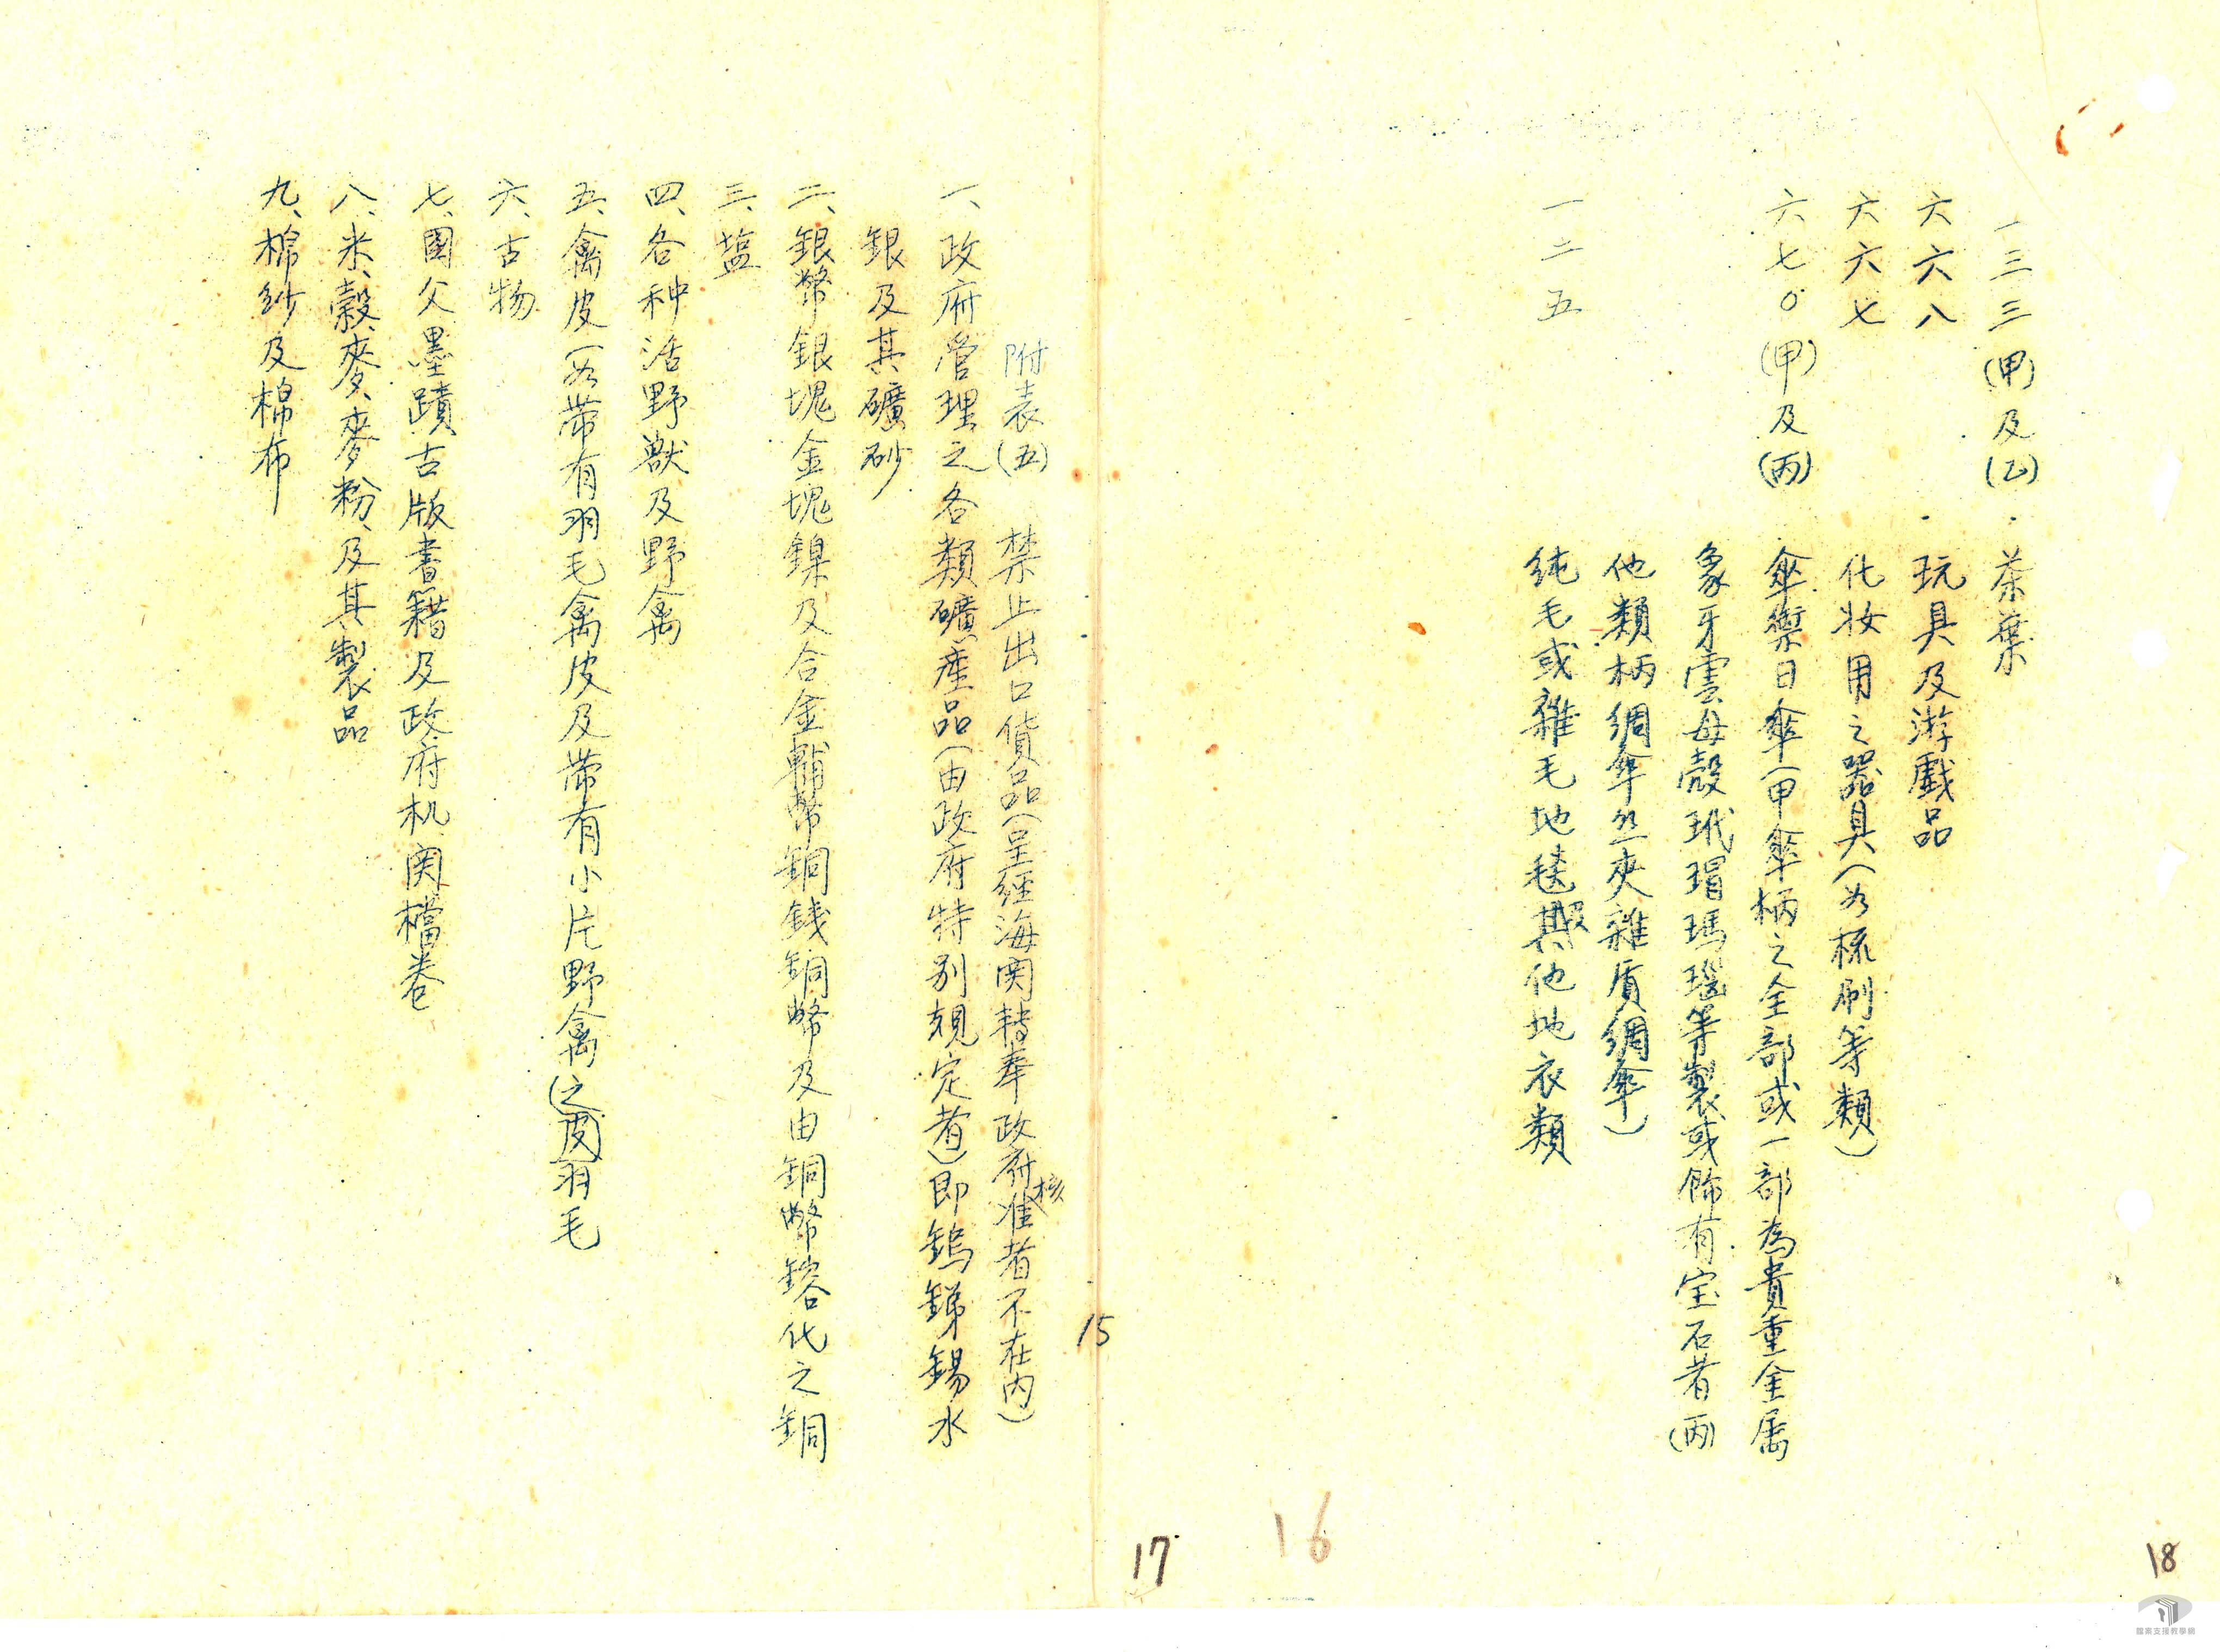 一三三(甲)及(乙)．茶葉
六六八．玩具及游戲品
六六七 化妝用之器具(如梳刷等類)
六七〇(甲)及(丙) 傘禦日傘(甲傘柄之全部或一部為貴重金属
象牙雲母殼玳瑁瑪瑙等製或飾有宝石者(丙)
他類柄綢傘絲夾雜質綢傘)
一二五 純毛或雜毛地毯及其他地衣類
附表(五) 禁止出口貨品(呈經海関轉奉政府核准者不在內)
一、政府管理之各類礦產品(由政府特別規定者)即鎢銻錫水
銀及其礦砂
二、銀幣銀塊金塊鎳及合金輔幣銅錢銅幣及由銅幣鎔化之銅
三、盐
四、各种活野獸及野禽
五、禽皮(如帶有羽毛禽皮及帶有小片野禽(之皮)羽毛
六、古物
七、國父墨蹟古版書籍及政府机関檔卷
八、米、穀、麥、麥粉、及其製品
九、棉紗及棉布
15
16
17
18
檔案支援教學網